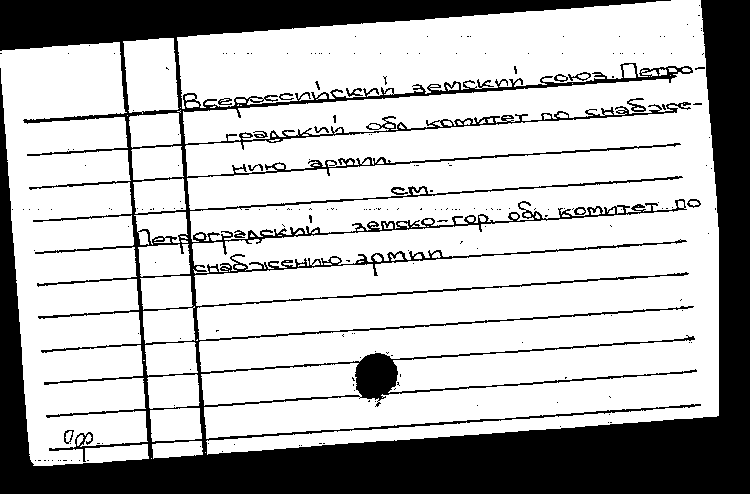 Всероссийский земский союз. Петро-
градский обл. комитет по снабже-
нию армии.
см.
Петроградский земско-гор. обл. комитет по
снабжению армии